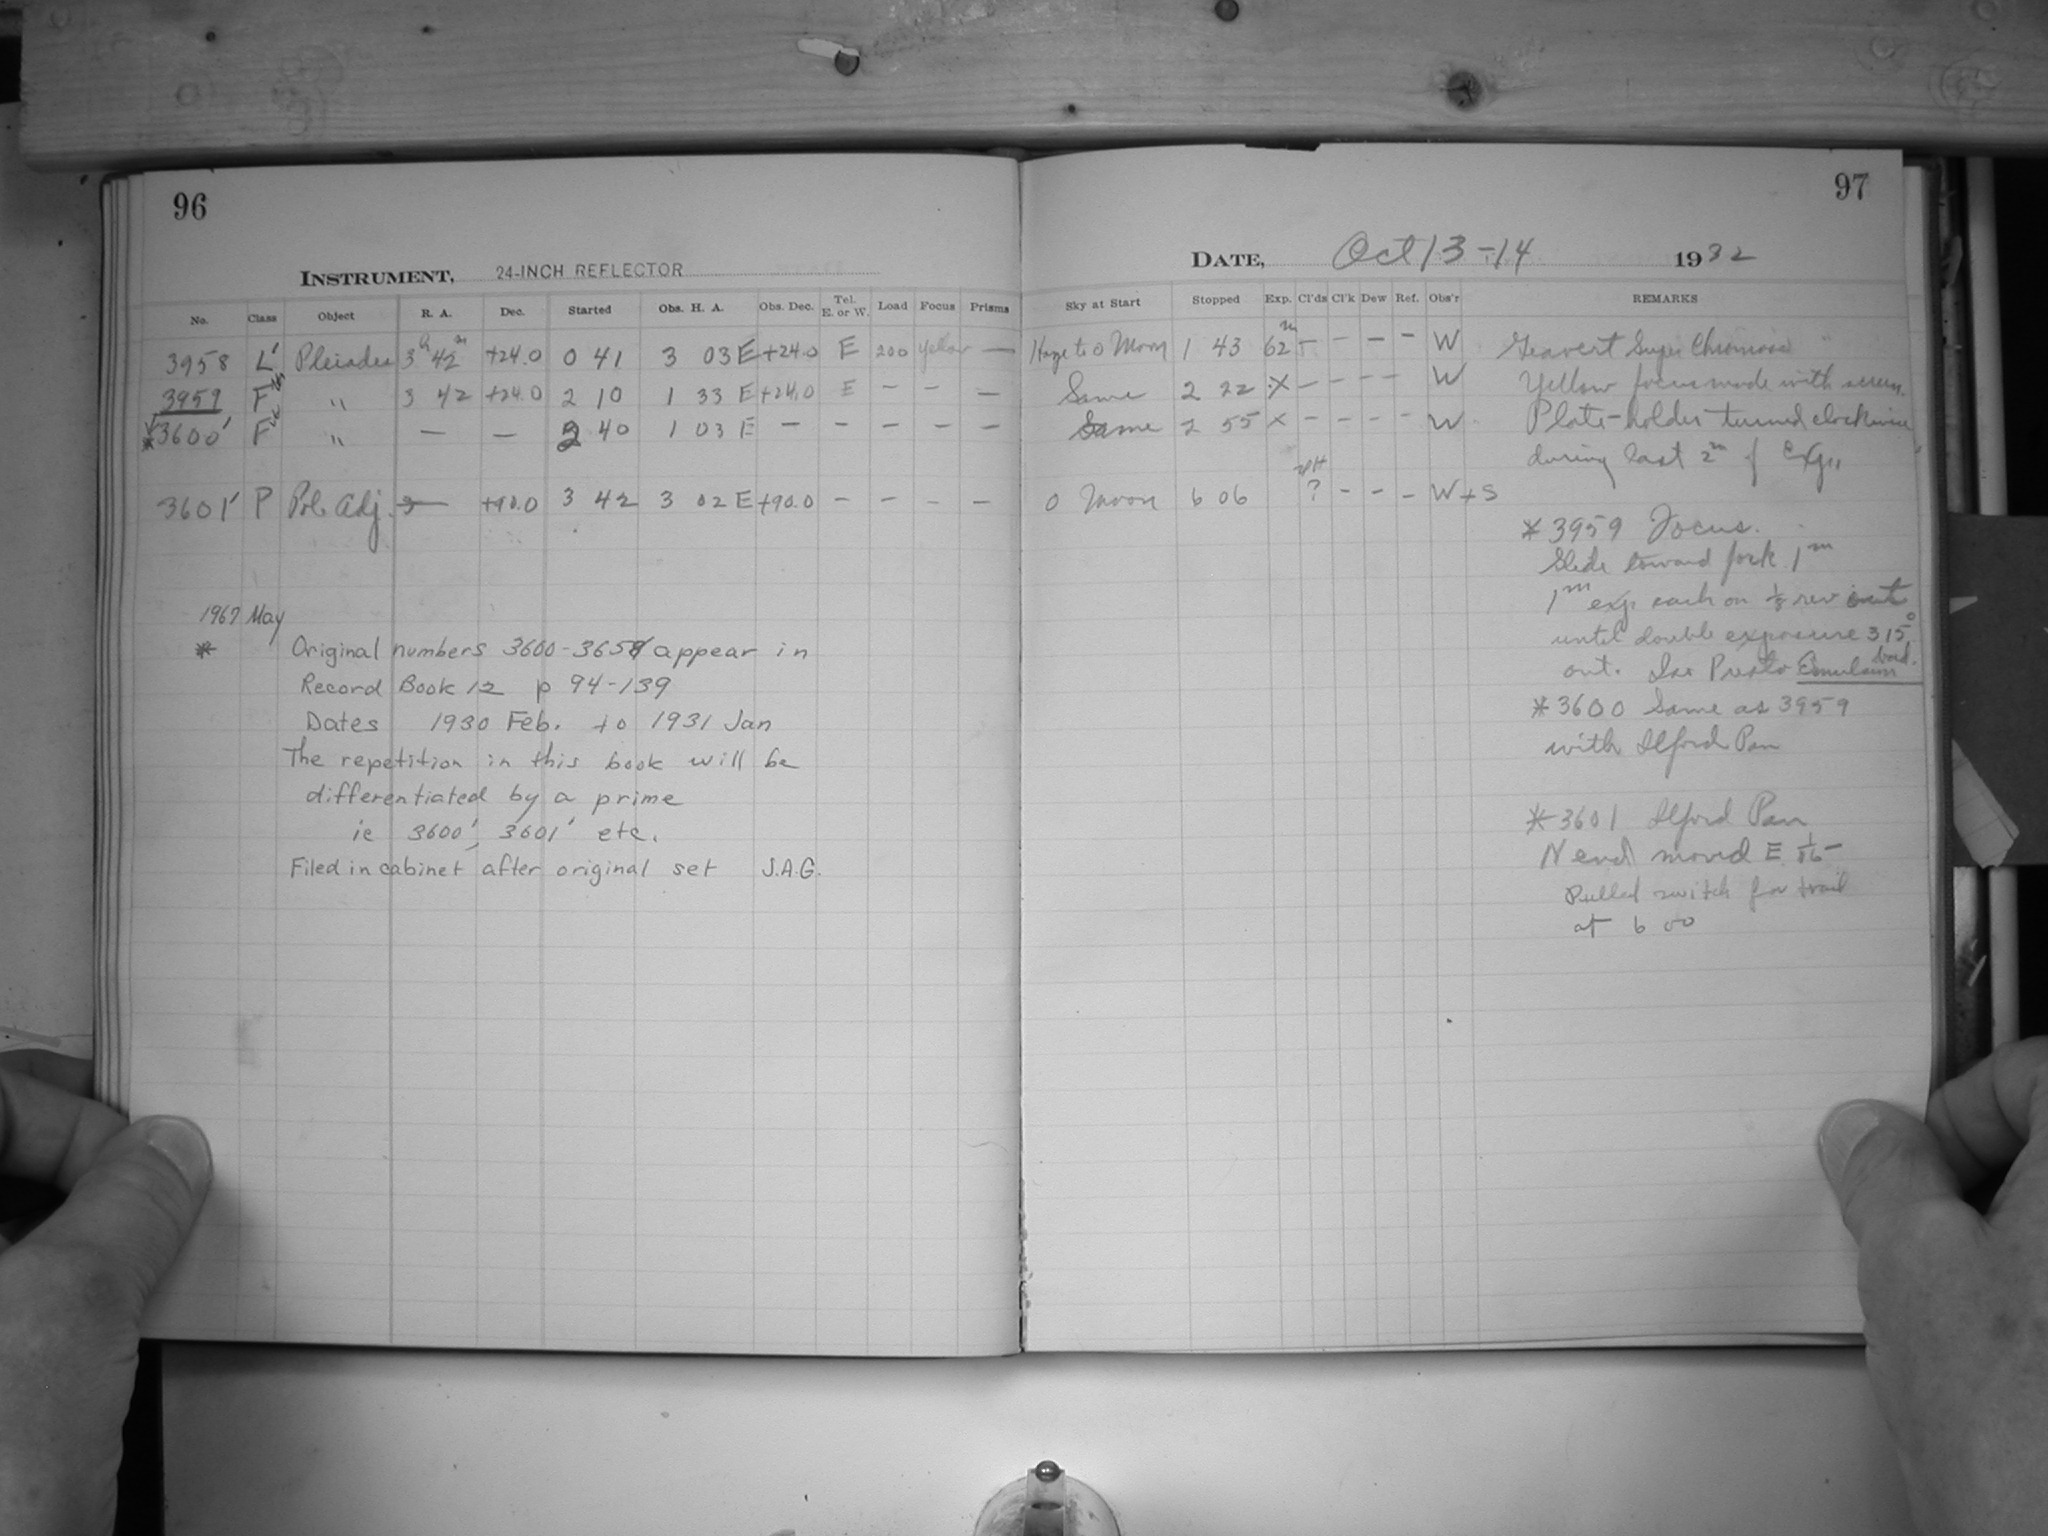 96
INSTRUMENT, 24-INCH REFLECTOR
No. Class Object R. A. Dec. Started Obs. H. A. Obs. Dec. Tel. E. or W. Load Focus Prisms
3958 L' Pleiades 3h 42m +24.0 0 41 3 03 E +24.0 E 200 Yellow —
3959 F " 3 42 +24.0 2 10 1 33 E +24.0 E — — —
*3600' F " — — 2 40 1 03 E — — — — —
3601' P Pole Adj. — +90.0 3 42 3 02 E +90.0 — — — —
1967 May
* Original numbers 3600-365 appear in
Record Book 12 p 94-139
Dates 1930 Feb. to 1931 Jan
The repetition in this book will be
differentiated by a prime
ie 3600', 3601' etc.
Filed in cabinet after original set J.A.G.
97
DATE, Oct 13-14 1932
Sky at Start Stopped Exp. Cl'ds Cl'k Dew Ref. Obs'r REMARKS
Haze to 0 Moon 1 43 62m — — — — W Gevaert Super Chromosa
Same 2 22 X — — — — W Yellow focus made with screen.
Same 2 55 X — — — — W Plate-holder turned clockwise
during last 2m of Exp.
0 Moon 6 06 ? — — — W+S
* 3959 Focus.
Slide toward fork 1m
1m exp. each on 1/8 rev out
until double exposure 315°
out. Ilf Presto Emulsion bad.
* 3600 Same as 3959
with Ilford Pan
* 3601 Ilford Pan
N end moved E 1/16 —
Pulled switch for trail
at 6 00